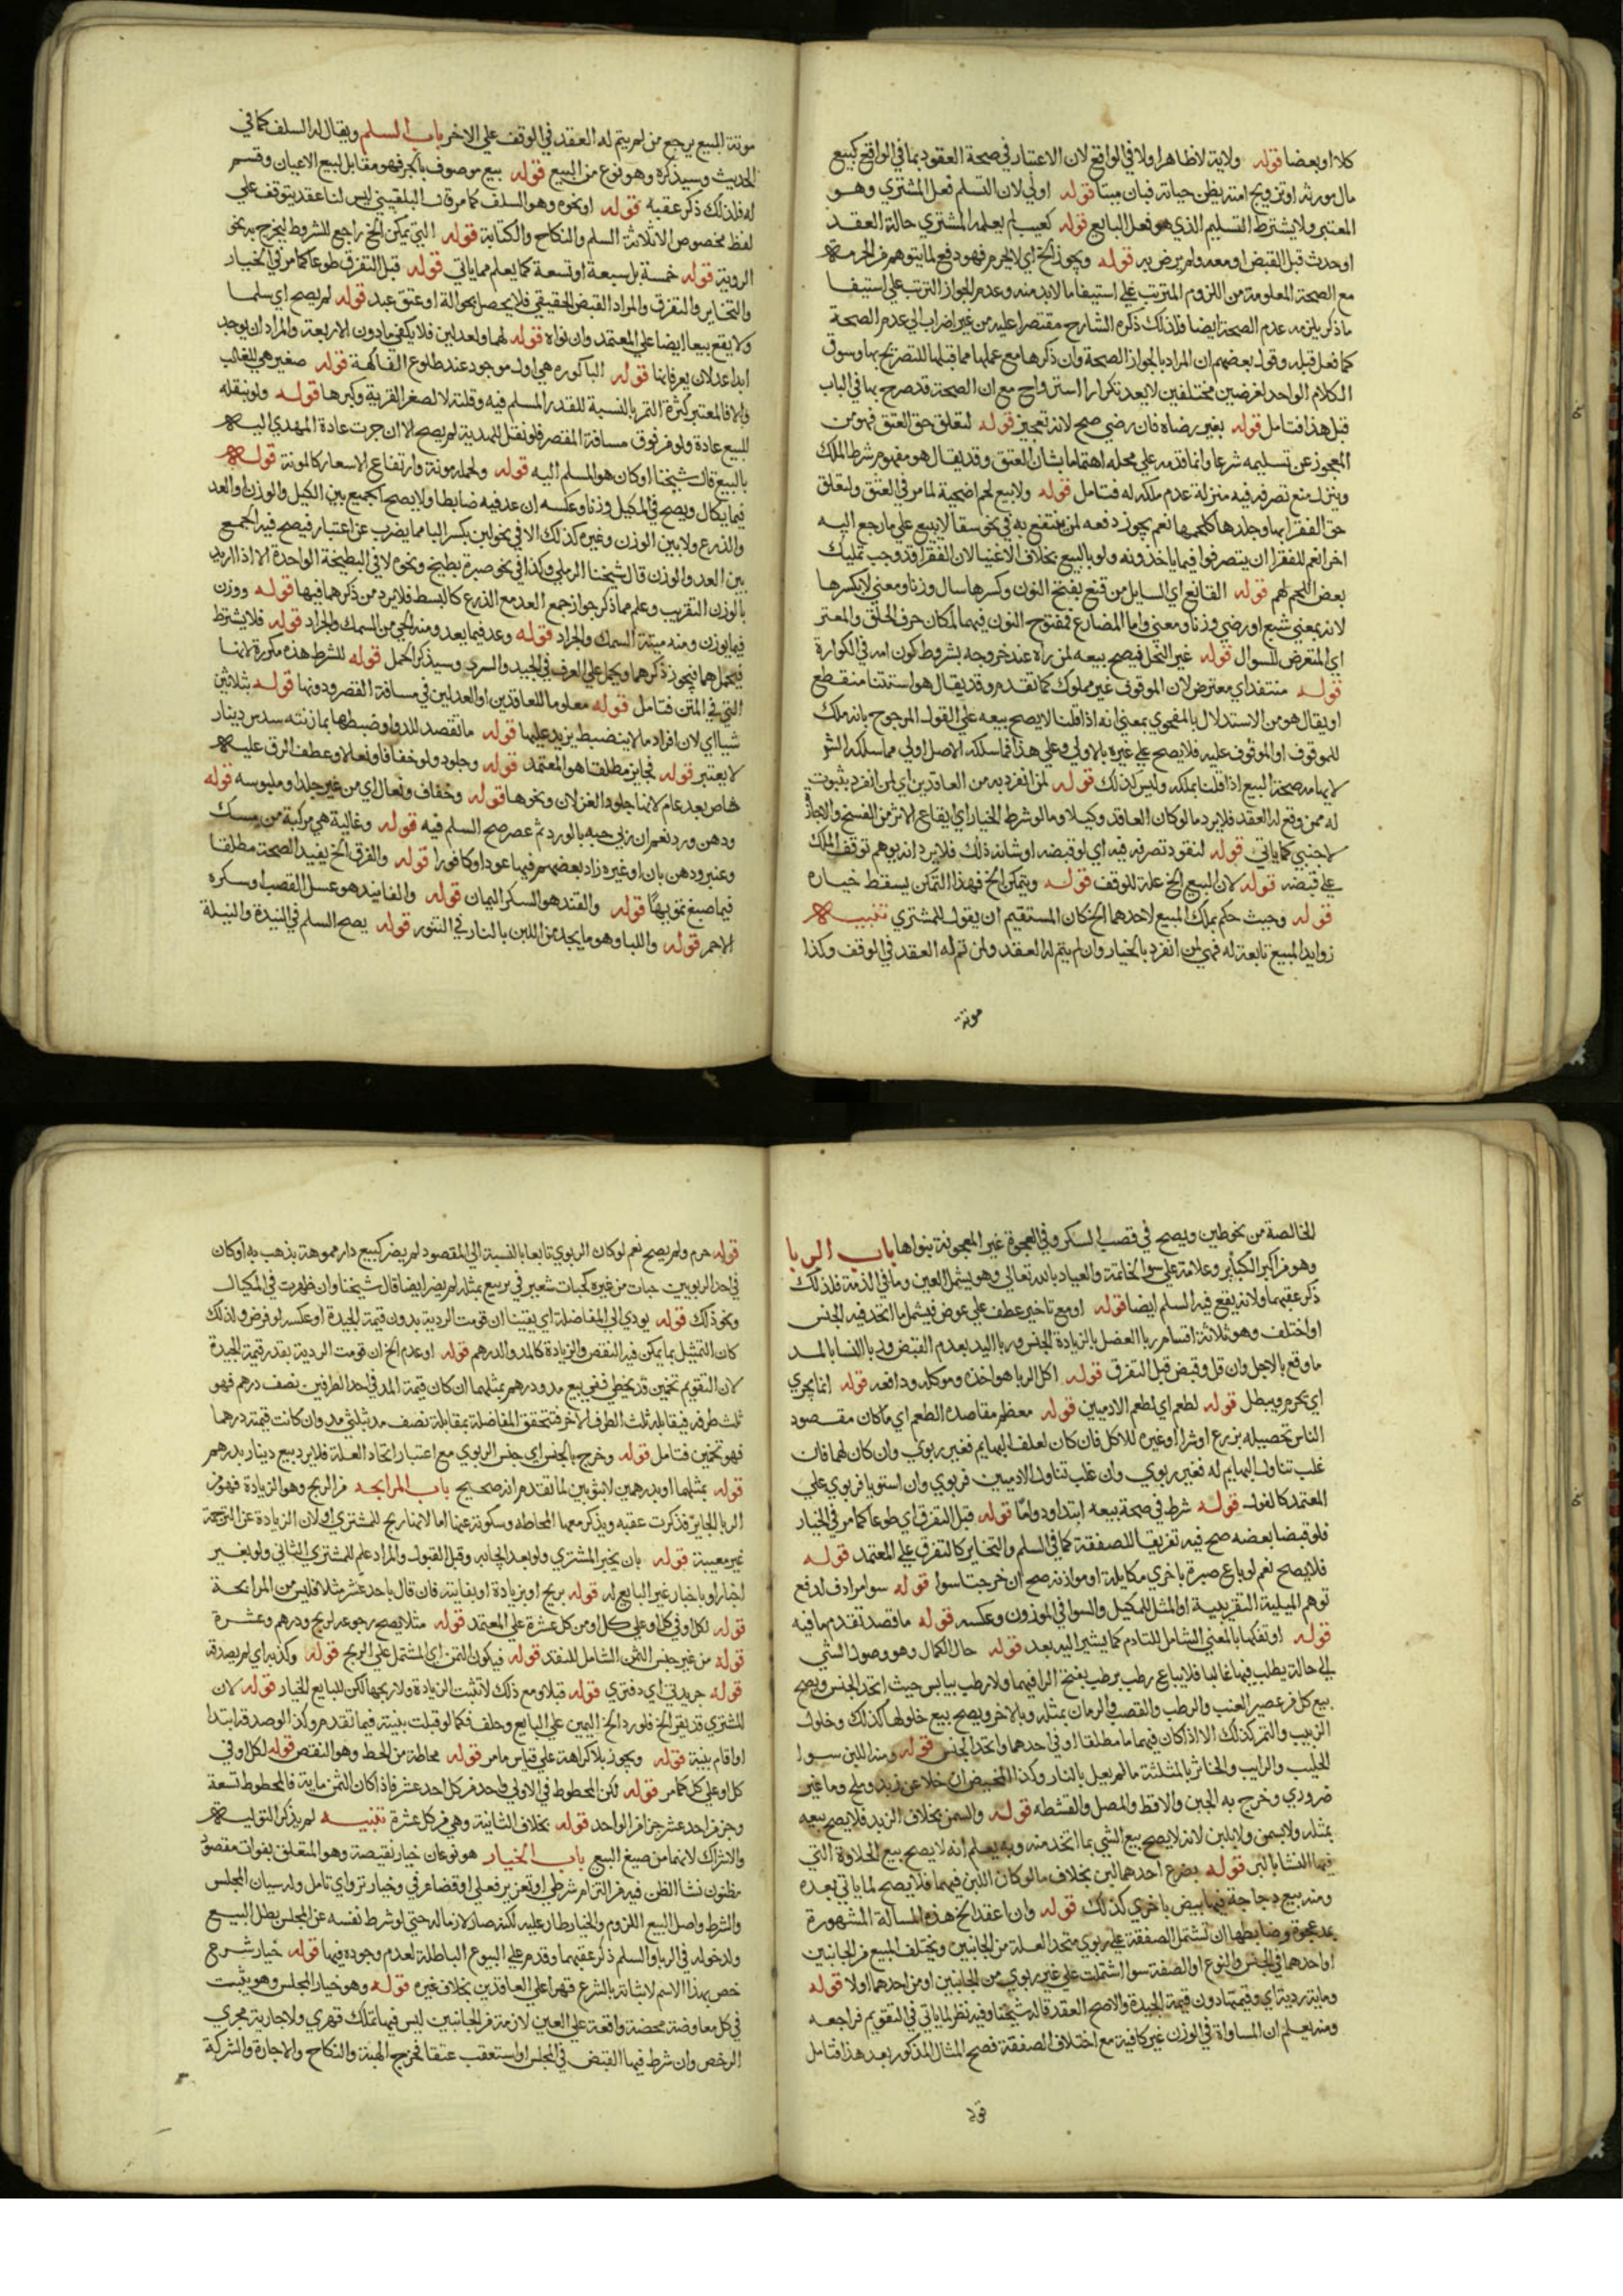 كلا او بعضا قوله ولاية لا ظاهرا ولا في الواقع لان الاعتبار في صحة العقود بما في الواقع كبيع
مال مورثه او تزويج امته يظن حياته فبان ميتا قوله اولي لان التسلم فعل المشتري وهو
المعتبر ولا يشترط التسليم الذي هو فعل البايع قوله كعيب لم يعلمه المشتري حالة العقد
او حدث قبل القبض او معه ولم يرض به قوله ويجوز الخ اي لا يحرم فهو دفع لما يتوهم من الحرمة
مع الصحة المعلومة من اللزوم المترتب علي استيفا ما لا بد منه وعدم الجواز الترتب علي استيفا
ما ذكر يلزمه عدم الصحة ايضا فلذلك ذكره الشارح مقتصرا عليه من غير اضراب الي عدم الصحة
كما فعل قبله وقول بعضهم ان المراد بالجواز الصحة وان ذكرها مع عملها مما قبلها للتصريح بها وسوق
الكلام الواحد لغرضين مختلفين لا يعد تكرارا استرواح مع ان الصحة قد صرح بها في الباب
قبل هذا فتامل قوله بغير رضاه فان رضي صح لانه تعجيز قوله لتعلق حق العتق فهو من
المعجوز عن تسليمه شرعا وانما قدمه علي محله اهتماما بشان العتق وقد يقال هو مفهوم شرط الملك
وينزل منع تصرفه فيه منزلة عدم ملكه له فتامل قوله ولا بيع لحم اضحية لما مر في العتق ولتعلق
حق الفقرا بها وجلدها كلحمها نعم يجوز دفعه لمن ينتفع به في نحو سقا لا ببيع علي ما رجع اليه
اخرا نعم للفقرا ان يتصرفوا فيما ياخذونه ولو بالبيع بخلاف الاغنيا لان الفقرا قد وجب تمليك
بعض اللحم لهم قوله القانع اي السايل من قنع بفتح النون وكسرها سال وزنا ومعني لا بكسرها
لانه بمعني شبع او رضي وزنا ومعني واما المضارع فمفتوح النون فيهما لمكان حرف الحلق والمعتر
اي المتعرض للسوال قوله غير النحل فيصح بيعه لمن راه عند خروجه بشروط كون امه في الكوارة
قوله منتقد اي معترض لان الموقوف غير مملوك كما تقدم وقد يقال هو استثنا منقطع
او يقال هو من الاستدلال بالمفحوي بمعني انه اذا قلنا لا يصح بيعه علي القول المرجوح بانه ملك
للموقوف او الموقوف عليه فلا يصح علي غيره بالاولي وعلي هذا فما سلكه الاصل اولي مما سلكه الش
لايهامه صحة البيع اذا قلنا بملكه وليس كذلك قوله لمن انفرد به من العاقدين اي لمن انفرد بثبوت
له ممن وقع له العقد فلا يرد ما لو كان العاقد وكيلا وما لو شرط الخيار اي ايقاع الاثر من الفسخ والاجازة
لاجنبي كما ياتي قوله لنفوذ تصرفه فيه اي لو قبضه او شانه ذلك فلا يرد انه يوهم توقف الملك
علي قبضه قوله لان البيع الخ علة للوقف قوله ويتمكن الخ فهذا التمكن يسقط خياره
قوله وحيث حكم بملك المبيع لاحدهما الخ كان المستقيم ان يقول للمشتري تنبيه
زوايد المبيع تابعة له فهي لمن انفرد بالخيار وان لم يتم له العقد ولمن تم له العقد في الوقف وكذا
مونة
مونة المبيع يرجع من لم يتم له العقد في الوقف علي الاخر باب السلم ويقال له السلف كما في
الحديث وسيذكره وهو نوع من البيع قوله بيع موصوف بالجر فهو مقابل لبيع الاعيان وقسم
له فلذلك ذكر عقبه قوله او نحوه وهو السلف كما مر قال البلقيني ليس لنا عقد يتوقف علي
لفظ مخصوص الا ثلاثة السلم والنكاح والكتابة قوله التي يمكن الخ راجع للشروط ليخرج به نحو
الروية قوله خمسة بل سبعة او تسعة كما يعلم مما ياتي قوله قبل التفرق طوعا كما مر في الخيار
والتخاير والتفرق والمراد القبض الحقيقي فلا يحصل بحوالة او عتق عبد قوله لم يصح اي سلما
ولا يقع بيعا ايضا علي المعتمد وان نواه قوله لهما ولعدلين فلا يكفي ما دون الاربعة والمراد ان يوجد
ابدا عدلان يعرفانها قوله الباكوره هي اول موجود عند طلوع الفاكهة قوله صغير هي للغالب
والا فالمعتبر كثرة التمر بالنسبة للقدر المسلم فيه وقلته لا لصغر القرية وكبرها قوله ولو بنقله
للبيع عادة ولو من فوق مسافة القصر فلو نقل للهدية لم يصح الا ان جرت عادة المهدي اليه
بالبيع قال شيخنا او كان هو المسلم اليه قوله ولحمله مونة وارتفاع الاسعار كالمونة قوله
فيما يكال ويصح في المكيل وزنا وعكسه ان عد فيه ضابطا ولا يصح الجميع بين الكيل والوزن او العد
والذرع ولا بين الوزن وغيره كذلك الا في نحو لبن بكسر البا مما يضرب عن اعتبار فيصح فيه الجمع
بين العد والوزن قال شيخنا الرملي وكذا في نحو صبرة بطيخ ونحوه لا في البطيخة الواحدة الا اذا اريد
بالوزن التقريب وعلم مما ذكر جواز جمع العد مع الذرع كالبسط فلا يرد من ذكرهما فيها قوله ووزن
فيما يوزن ومنه ميتة السمك والجراد قوله وعد فيما يعد ومنه الحي من السمك والجراد قوله فلا يشترط
فيحمل هما فيجوز ذكرهما ويحمل علي العرف في الجيد والسري وسيذكر الحمل قوله للشرط هذه مكررة لانها
التي في المتن فتامل قوله معلوما للعاقدين او العدلين في مسافة القصر ودونها قوله بثلاثين
شيا اي لان افراد ما لا ينضبط يزيد عليها قوله ما تقصد للدوا وضبطها بما زنته سدس دينار
لا يعتبر قوله فجايز مطلقا هو المعتمد قوله وجلود ولو خفافا ونعالا وعطف الرق عليه
خاص بعد عام لانها جلود الغزلان ونحوها قوله وخفاف ونعال اي من غير جلد او ملبوسه قوله
ودهن ورد نعم ان ربي حبه بالورد ثم عصر صح السلم فيه قوله وغالية هي مركبة من مسك
وعنبر ودهن بان او غيره زاد بعضهم فيها عودا وكافورا قوله والفرق الخ يفيد الصحة مطلقا
فيما صبغ توبها قوله والقند هو السكر اليمان قوله والفانيد هو عسل القصب او سكره
الاحمر قوله واللبا وهو ما يجمد من اللبن بالنار في التنور قوله يصح السلم في النيدة والنيلة
الخالصة من نحو طين ويصح في قصب السكر وفي العجوة غير المعجونة بنواها باب الربا
وهو من اكبر الكباير وعلامة علي سو الخاتمة والعياذ بالله تعالي وهو يشمل العين وما في الذمة فلذلك
ذكر عقبهما ولانه يقع فيه السلم ايضا قوله او مع تاخير عطف علي عوض فيشمل ما اتحد فيه الجنس
او اختلف وهو ثلاثة اقسام ربا الفضل بالزيادة لجنس وربا اليد بعدم القبض وربا النسا بالمد
ما وقع بالاجل وان قل وقبض قبل التفرق قوله اكل الربا هو اخذه وموكله ودافعه قوله انما يجري
اي يحرم ويبطل قوله لطعم اي لطعم الادميين قوله معظم مقاصده الطعم اي ما كان مقصود
الناس تحصيله بزرع او شرا او غيره للاكل فان كان لعلف البهايم فغير ربوي وان كان لهما فان
غلب تناول البهايم له فغير ربوي وان غلب تناول الادميين فربوي وان استويا فربوي علي
المعتمد كالفول قوله شرط في صحة بيعه ابتدا ودواما قوله قبل التفرق اي طوعا كما مر في الخيار
فلو قبضا بعضه صح فيه تفريقا للصفقة كما في السلم والتخاير كالتفرق علي المعتمد قوله
فلا يصح نعم لو باع صبرة باخري مكايلة او موازنة صح ان خرجتا سوا قوله سوا مرادف لدفع
توهم المثلية التقريبية او المثل للمكيل والسوا في الموزون وعكسه قوله ما قصد تقدم ما فيه
قوله او تفكها بالمعني الشامل للتادم كما يشير اليه بعد قوله حال الكمال وهو وصول الشي
الي حالة يطلب فيها غالبا فلا يباع رطب برطب بفتح الرا فيهما ولا رطب بيابس حيث اتحد الجنس ويصح
بيع كل من عصير العنب والرطب والقصب والرمان بمثله وبالاخر ويصح بيع خلولها كذلك وخلول
الزبيب والتمر كذلك الا اذا كان فيهما ما مطلقا او في احدهما واتحد الجنس قوله ومنه اللبن سوا
الحليب والرايب والخاثر بالمثلثة ما لم يغل بالنار وكذا المخيض ان خلا عن زبد وملح وما غير
ضروري وخرج به الجبن والاقط والمصل والقشطه قوله والسمن بخلاف الزبد فلا يصح بيعه
بمثله ولا بسمن ولا بلبن لانه لا يصح بيع الشي بما اتخذ منه وبه يعلم انه لا يصح بيع الحلاوة التي
فيها النشا بالبر قوله بضرع احدهما لبن بخلاف ما لو كان اللبن فيهما فلا يصح لما ياتي بعده
ومنه بيع دجاجة فيها بيض باخري كذلك قوله وان اعقد الخ هذه المسالة المشهورة
بمد عجوة وضابطها ان تشتمل الصفقة علي ربوي متحد العلة من الجانبين ويختلف المبيع من الجانبين
او احدهما في الجنس او النوع او الصفة سوا اشتملت علي غير ربوي من الجانبين او من احدهما او لا قوله
وماية رديئة اي وقيمتها دون قيمة الجيدة والا صح العقد قاله شيخنا وفيه نظر لما ياتي في التقويم فراجعه
ومنه يعلم ان المساواة في الوزن غير كافية مع اختلاف الصفقة فصح المثال المذكور بعد هذا فتامل
قوله
قوله حرم ولم يصح نعم لو كان الربوي تابعا بالنسبة الي المقصود لم يضر كبيع دار مموهة بذهب به او كان
في احد الربويين حبات من غيره كحبات شعير في بر بيع بمثله لم يضر ايضا قال شيخنا وان ظهرت في المكيال
ونحو ذلك قوله يودي الي المفاضلة اي يقينا ان قومت الردية بدون قيمة الجيدة او عكسه لو فرض ولذلك
كان التمثيل بما يمكن فيه النقص والزيادة كالمد والدرهم قوله او عدم الخ ان قومت الردية بقدر قيمة الجيدة
لان التقويم تخمين قد يخطي ففي بيع مد ودرهم بمثلهما ان كان قيمة المد في احد الطرفين نصف درهم فهو
ثلث طرفه فيقابله ثلث الطرف الاخر فتتحقق المفاضلة بمقابلة نصف مد بثلثي مد وان كانت قيمته درهما
فهو تخمين فتامل قوله وخرج بالجنس اي جنس الربوي مع اعتبار اتحاد العلة فلا يرد بيع دينار بدرهم
قوله بمثلهما او بدرهمين لا بثوبين لما تقدم انه صحيح باب المرابحه من الربح وهو الزيادة فهو من
الربا الجايز فذكرت عقبه ويذكر معها المحاطه وسكوته عنها اما لانها ربح للمشتري او لان الزيادة عن الترجمة
غير معيبة قوله بان يخبر المشتري ولو بعد ايجابه وقبل القبول والمراد علم للمشتري الثاني ولو بغير
اخبار او باخبار غير البايع له قوله بربح او بزيادة او بفايئة فان قال باحد عشر مثلا فليس من المرابحة
قوله لكل او في كل او علي كل او من كل عشرة علي المعتمد قوله مثلا يصح رجوعه لربح ودرهم وعشرة
قوله من غير جنس الثمن الشامل للنقد قوله فيكون الثمن اي المشتمل علي الربح قوله وكذبه اي لم يصدقه
قوله جريدتي اي دفتري قوله قبلا ومع ذلك لا تثبت الزيادة ولا ربحها لكن للبايع الخيار قوله لان
المشتري قد يقر الخ فلو رد الخ اليمين علي البايع وحلف فكما لو قبلت بينته فيما تقدم وكذا لو صدقه ابتدا
او اقام بينة قوله ويجوز بلا كراهة علي قياس ما مر قوله محاطة من الحط وهو النقص قوله لكل او في
كل او علي كل كما مر قوله لكن المحطوط في الاولي واحد من كل احد عشر فاذا كان الثمن ماية فالمحطوط تسعة
وجز من احد عشر جزا من الواحد قوله بخلاف الثانية وهي من كل عشرة تنبيه لم يذكر التولية
والاشراك لانهما من صيغ البيع باب الخيار هو نوعان خيار نقيصة وهو المتعلق بفوات مقصود
مظنون نشا الظن فيه من التزام شرطي او تغرير فعلي او قضا عرفي وخيار تروي اي تامل وله سببان المجلس
والشرط واصل البيع اللزوم والخيار طار عليه لكنه صار لازما له حتي لو شرط نفسه عن المجلس بطل البيع
ولدخوله في الربا والسلم ذكر عقبهما وقدم علي البيوع الباطلة لعدم وجوده فيها قوله خيار شرع
خص بهذا الاسم لاثباته بالشرع قهرا علي العاقدين بخلاف غيره قوله وهو خيار المجلس وهو يثبت
في كل معاوضة محضة واقعة علي العين لازمة من الجانبين ليس فيها تملك قهري ولا جارية مجري
الرخص وان شرط فيها القبض في المجلس او استعقب عتقا فخرج الهبة والنكاح والاجارة والشركة